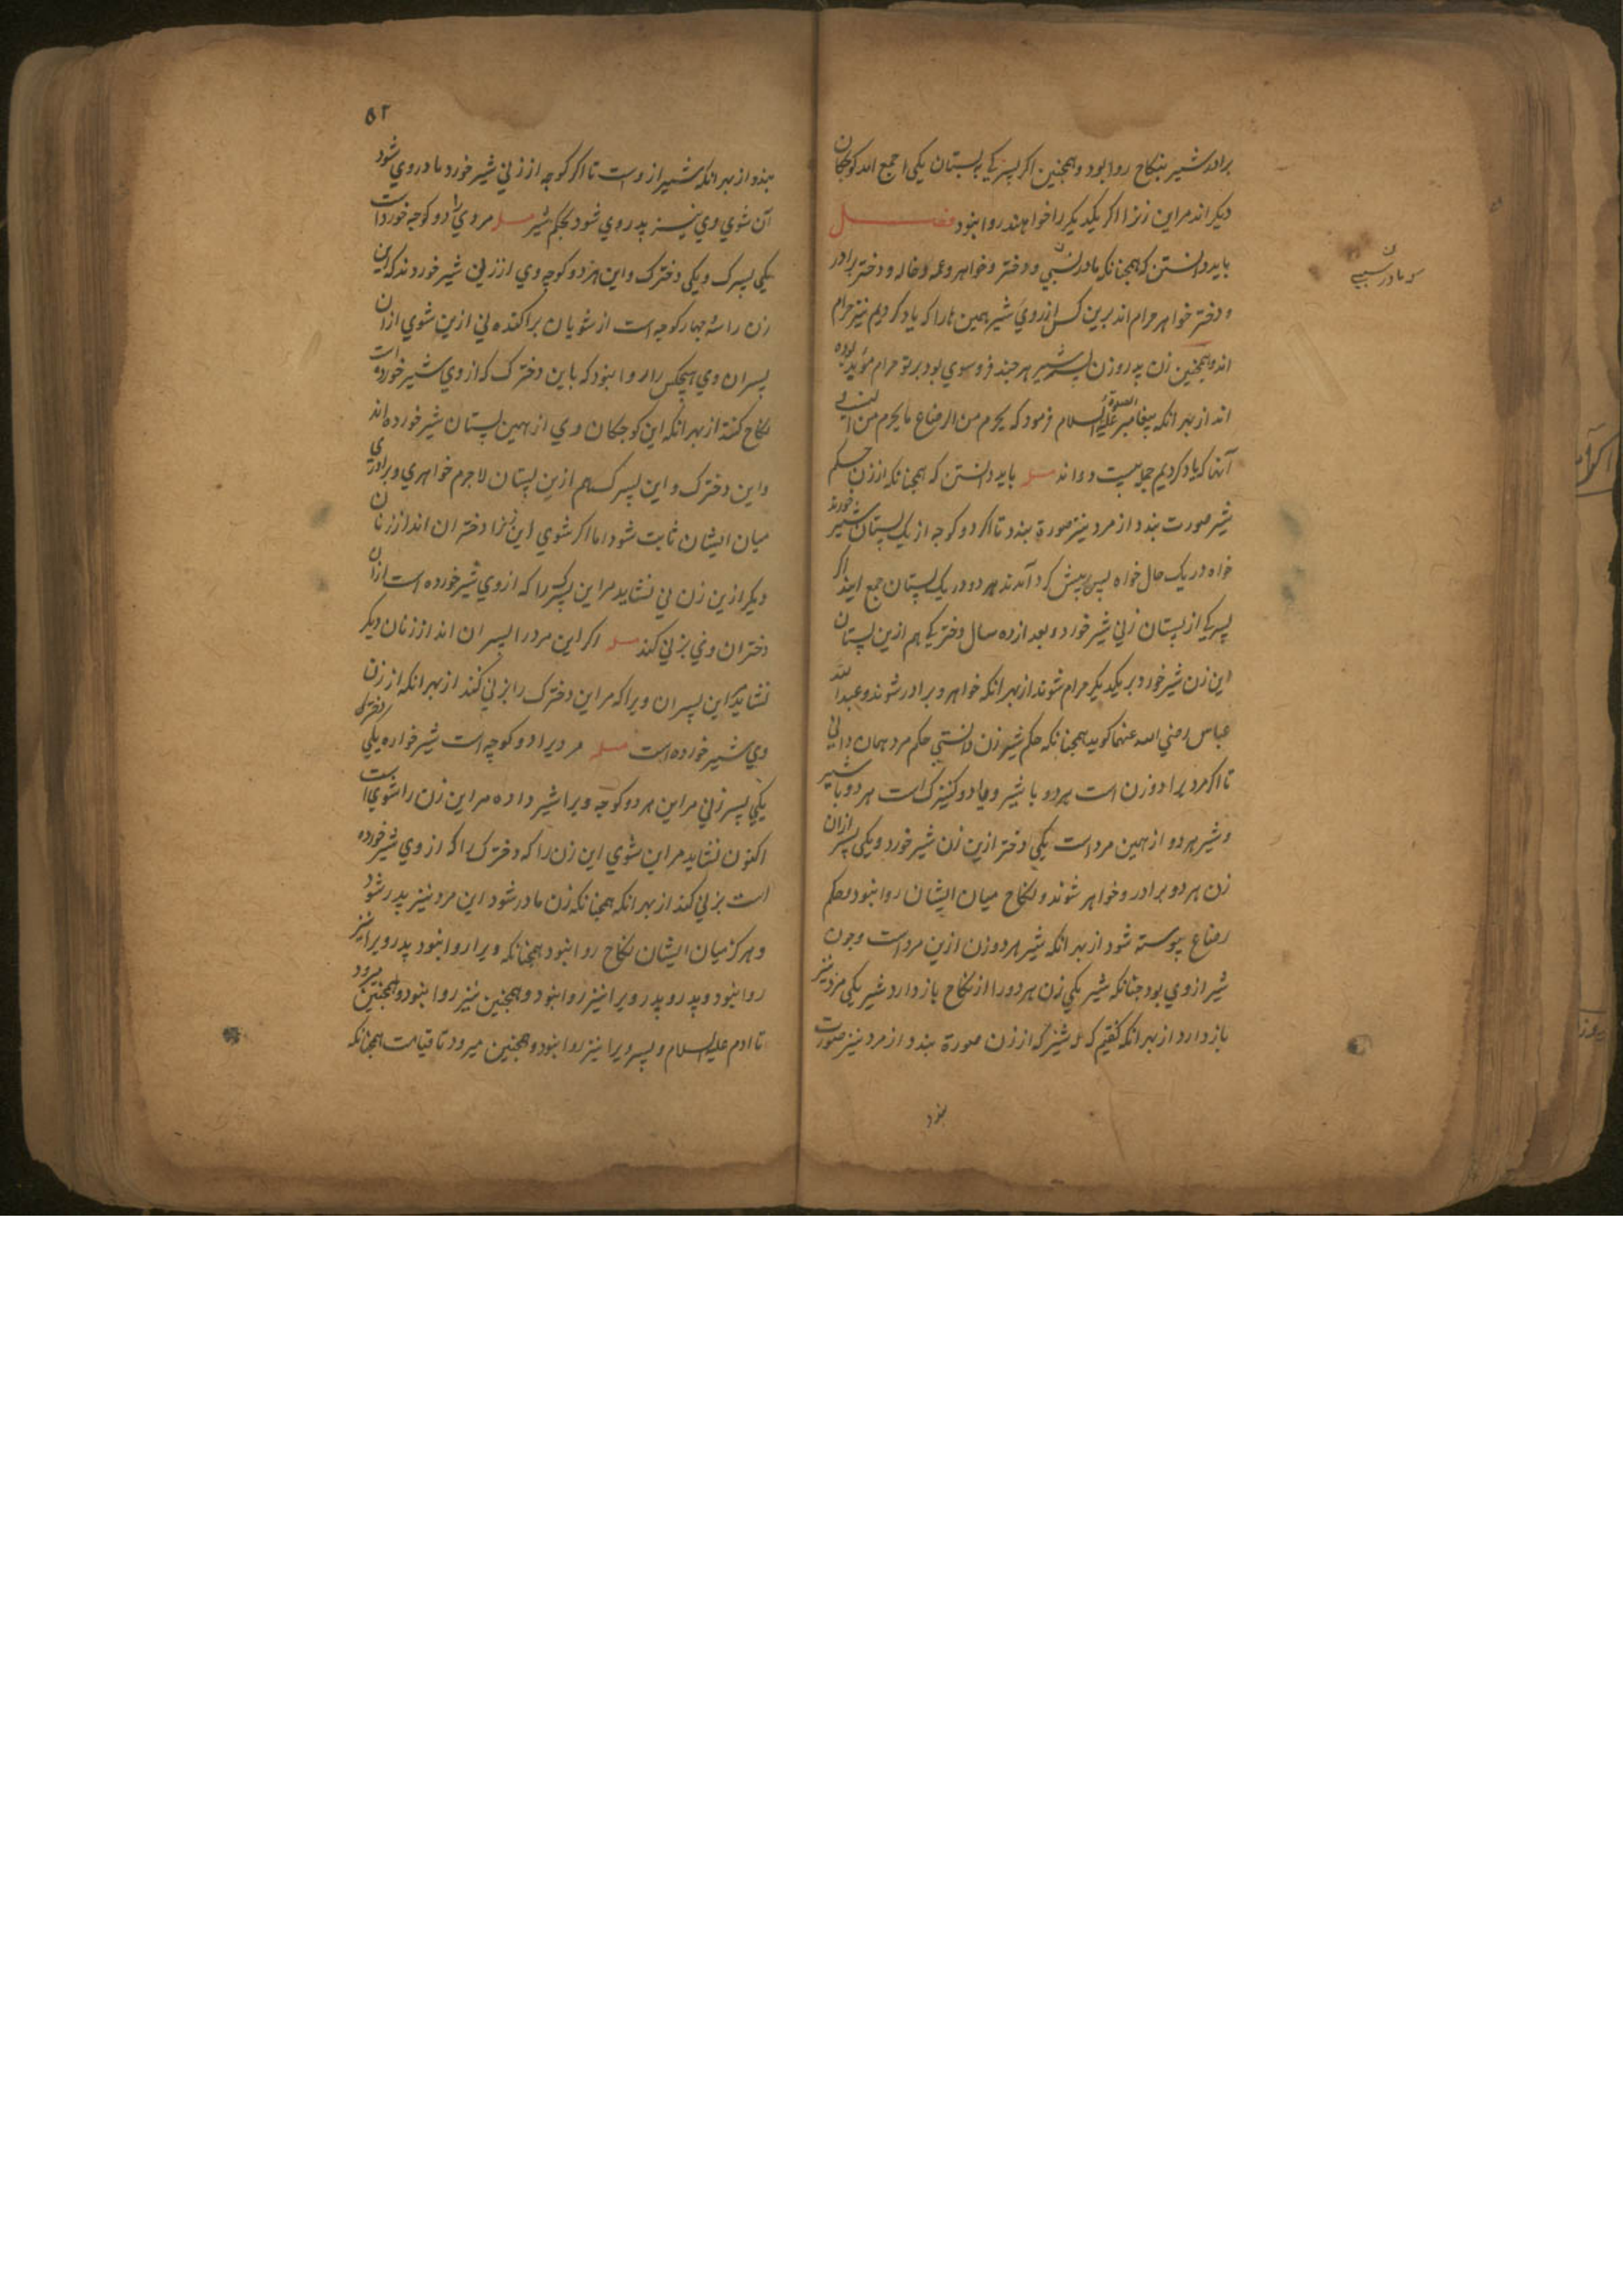 برادر شیر بنکاح روا بود و همچنین اکر پسر یکی بپستان یکی جمع اند کوچکان
دیکر اند مر این زنرا اکر یکدیکر را خواهند روا نبود فصل
باید دانستن که همچنانکه مادر نسبی و دختر و خواهر و عمه و خاله و دختر برادر
و مادر سببی
و دختر خواهر حرام اند برین کس از روی شیر همین ها را که یاد کردیم نیز حرام
اند و همچنین زن پدر و زن پسر شیر هر چند فروسوی بود بر تو حرام مؤبد بوده
اند از بهر انکه پیغامبر علیه الصلوة السلام فرمود که یحرم من الرضاع ما یحرم من النسب
آنها که یاد کردیم جمله بیست و دو اند مسله باید دانستن که همچنانکه از زن حکم
شیر صورت بندد از مرد نیز صورة بندد تا اکر دو کوچه از یک پستان شیر خورند
خواه در یک حال خواه پس پیش کرد آمدند هر دو در یک پستان جمع ایند اکر
پسر یکی از پستان زنی شیر خورد و بعد از ده سال دختر یکی هم ازین پستان
این زن شیر خورد بر یکدیکر حرام شوند از بهر انکه خواهر و برادر شوند و عبدالله
عباس رضی الله عنهما کوید همچنانکه حکم شیر زن دانستی حکم مرد همان دانی
تا اکر مردیرا دو زن است هر دو با شیر و یا دو کنیزک است هر دو با شیر
و شیر هر دو از همین مرد است یکی دختر ازین زن شیر خورد و یکی پسر ازان
زن هر دو برادر و خواهر شوند و نکاح میان ایشان روا نبود و حکم
رضاع پیوسته شود از بهر انکه شیر هر دو زن ازین مرد است و چون
شیر از وی بود چنانکه شیر یکی زن هر دو را از نکاح باز دارد شیر یکی مرد نیز
باز دارد از بهر انکه کفتیم که شیر که از زن صورة بندد از مرد نیز صورت
بندد
۵۲
بندد از بهر انکه شیر از وست تا اکر کوچه از زنی شیر خورد مادر وی شود
آن شوی وی نیز پدر وی شود بحکم شیر مسله مردی را دو کوچه خورد است
یکی پسرک و یکی دخترک و این هر دو کوچه وی از زنی شیر خوردند که این
زن را سه چهار کوچه است از شویان پراکنده نی ازین شوی ازان
پسران وی هیچکس را روا نبود که باین دخترک که از وی شیر خورده است
نکاح کنند از بهر انکه این کوچکان وی از همین پستان شیر خورده اند
و این دخترک و این پسرک هم ازین پستان لاجرم خواهری و برادری
میان ایشان ثابت شود اما اکر شوی این زنرا دختران اند از زنان
دیکر ازین زن نی نشاید مر این پسر را که از وی شیر خورده است ازان
دختران وی بزنی کند مسله اکر این مرد را پسران اند از زنان دیکر
نشاید این پسران ویرا که مر این دخترک را بزنی کنند از بهر انکه از زن
وی شیر خورده است مسله مردیرا دو کوچه است شیر خواره یکی دخترک
یکی پسر زنی مر این هر دو کوچه ویرا شیر داده مر این زن را شوی است
اکنون نشاید مر این شوی این زن را که دخترک را که از وی شیر خورده
است بزنی کند از بهر انکه همچنانکه زن مادر شود این مرد نیز پدر شود
و هرکز میان ایشان نکاح روا نبود همچنانکه ویرا روا نبود پدر ویرا نیز
روا نبود و پدر و پدر ویرا نیز روا نبود و همچنین نیز روا نبود و همچنین میرود
تا ادم علیه السلام و پسر ویرا نیز روا نبود و همچنین میرود تا قیامت همچنانکه